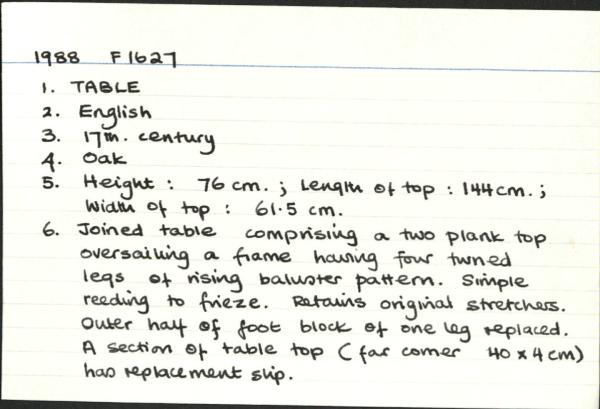 1988 F1627
1. TABLE
2. English
3. 17th. century
4. Oak
5. Height : 76 cm. ; Length of top : 144 cm. ;
Width of top : 61.5 cm.
6. Joined table comprising a two plank top
oversailing a frame having four turned
legs of rising baluster pattern. Simple
reeding to frieze. Retains original stretchers.
Outer half of foot block of one leg replaced.
A section of table top (far corner 40 x 4 cm)
has replacement slip.